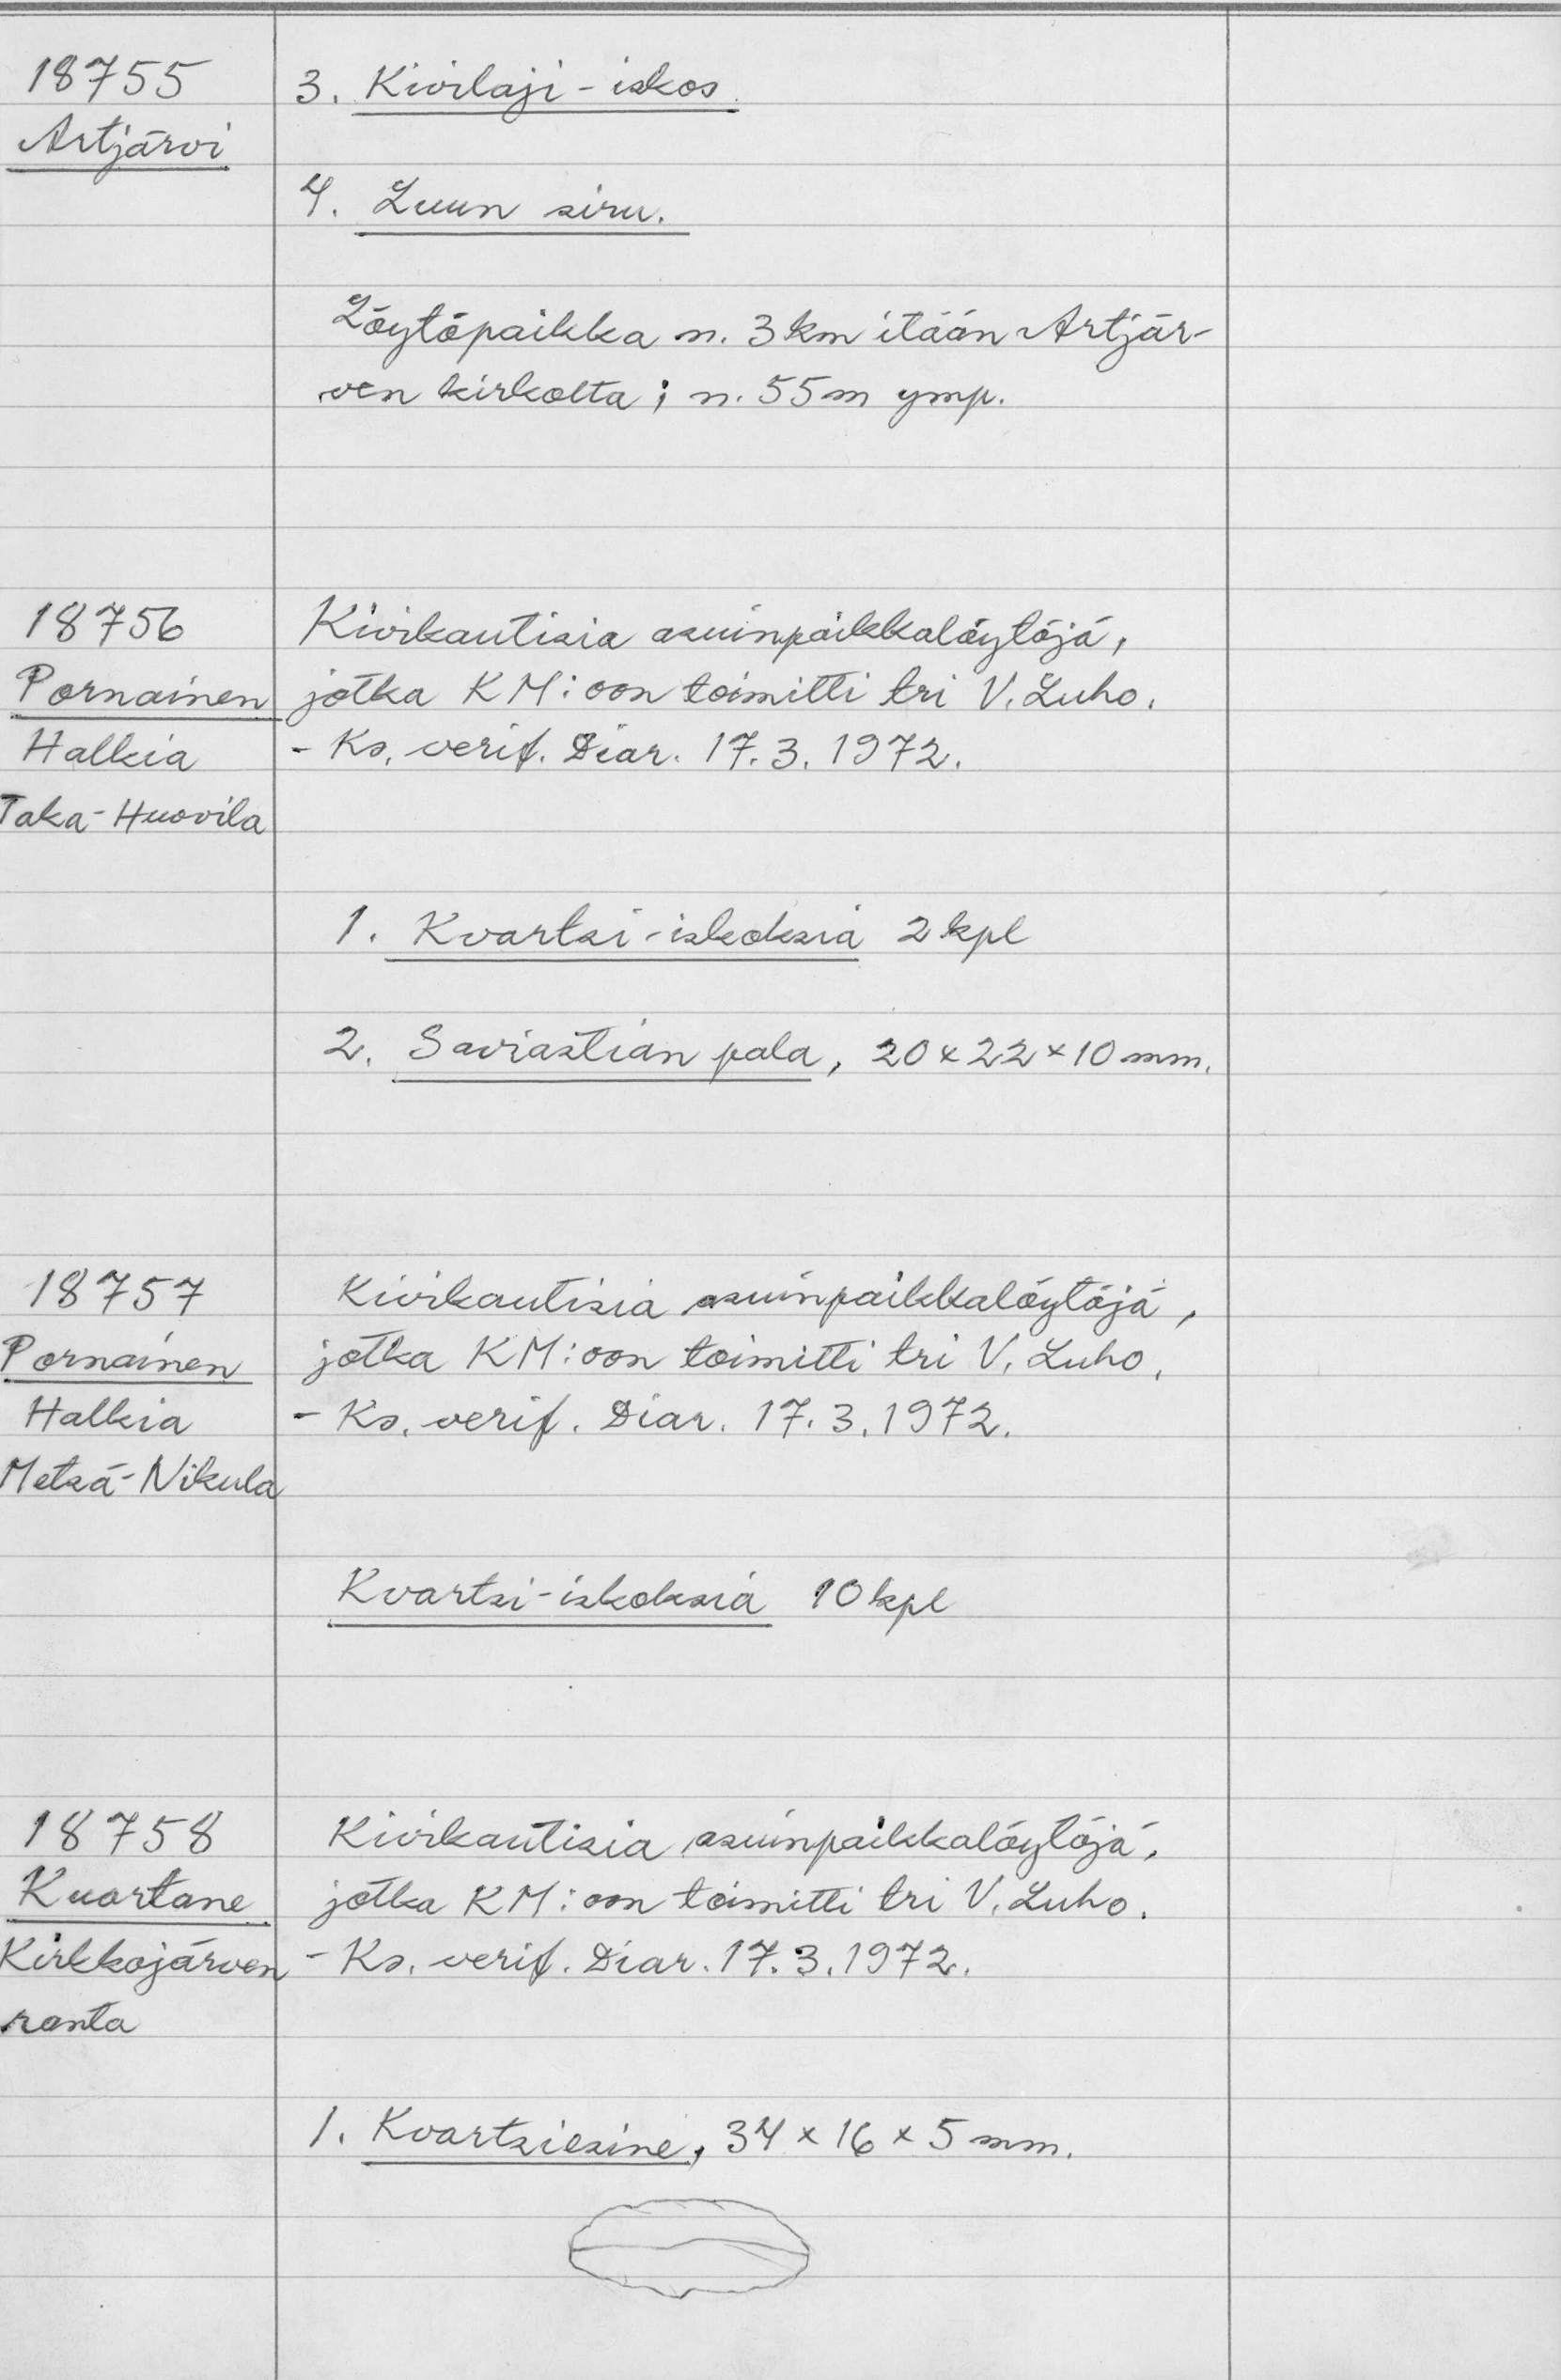 18755
Artjärvi
3. Kivilaji-iskos.
4. Luun siru.
Löytöpaikka n. 3 km itään Artjär-
ven kirkolta; n. 55 m ymp.
18756
Pornainen
Halkia
Taka-Huovila
Kivikautisia asuinpaikkalöytöjä,
jotka KM:oon toimitti tri V. Luho.
- Ks. verif. Diar. 17.3.1972.
1. Kvartsi-iskoksia 2 kpl
2. Saviastian pala, 20 x 22 x 10 mm.
18757
Pornainen
Halkia
Metsä-Nikula
Kivikautisia asuinpaikkalöytöjä,
jotka KM:oon toimitti tri V. Luho.
- Ks. verif. Diar. 17.3.1972.
Kvartsi-iskoksia 10 kpl
18758
Kuortane
Kirkkojärven
ranta
Kivikautisia asuinpaikkalöytöjä,
jotka KM:oon toimitti tri V. Luho.
- Ks. verif. Diar. 17.3.1972.
1. Kvartsiesine, 34 x 16 x 5 mm.